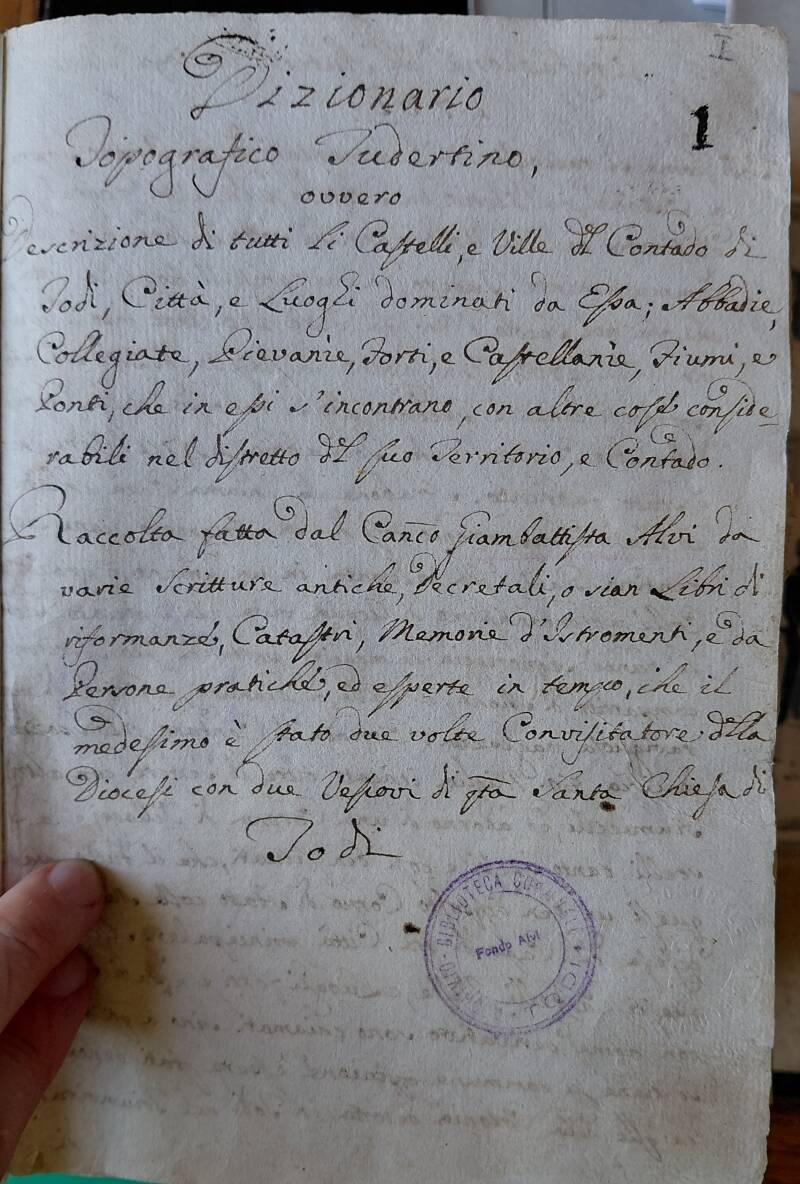 I
1
Dizionario
Topografico Tudertino,
ovvero
Descrizione di tutti li Castelli, e Ville dl Contado di
Todi, Città, e Luoghi dominati da Essa; Abbadie,
Collegiate, Pievanìe, Forti, e Castellanìe, Fiumi, e
Ponti, che in essi s'incontrano, con altre cose conside_
rabili nel distretto dl suo Territorio, e Contado.
Raccolta fatta dal Canco Giambattista Alvi da
varie scritture antiche, Decretali, o sian Libri di
riformanze, Catastri, Memorie d'Istromenti, e da
Persone pratiche, ed esperte in tempo, che il
medesimo è stato due volte Convisitatore dlla
Diocesi con due Vescovi di qta Santa Chiesa di
Todi
BIBLIOTECA COMUNALE
TODI
Fondo Alvi